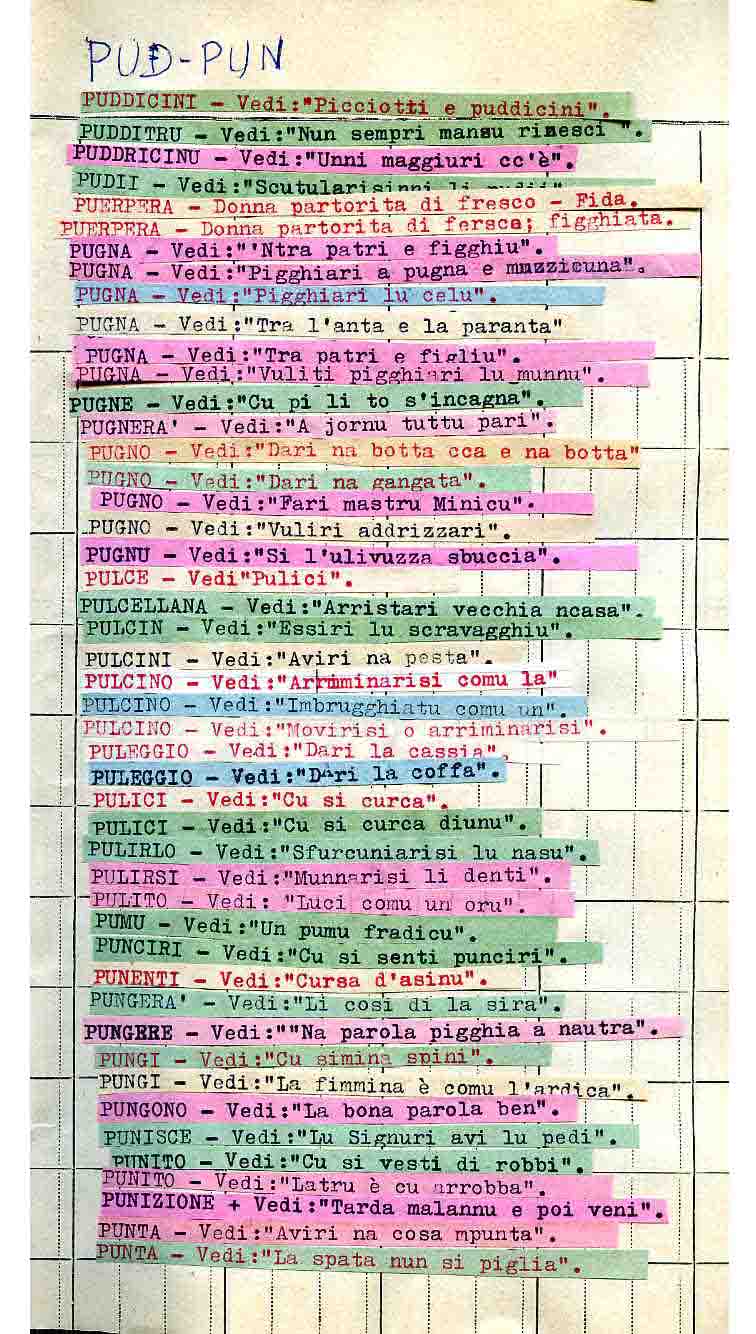 PUD-PUN
PUDDICINI - Vedi:"Picciotti e puddicini".
PUDDITRU - Vedi:"Nun sempri mansu riesci ".
PUDDRICINU - Vedi:"Unni maggiuri cc'è".
PUDII - Vedi:"Scutularisinni li
PUERPERA - Donna partorita di fresco - Fida.
PUERPERA - Donna partorita di fersco; figghiata.
PUGNA - Vedi:"'Ntra patri e figghiu".
PUGNA - Vedi:"Pigghiari a pugna e muzzicuna".
PUGNA - Vedi:"Pigghiari lu celu".
PUGNA - Vedi:"Tra l'anta e la paranta"
PUGNA - Vedi:"Tra patri e figliu".
PUGNA - Vedi:"Vuliti pigghiari lu munnu".
PUGNE - Vedi:"Cu pi li to s'incagna".
PUGNERA' - Vedi:"A jornu tuttu pari".
PUGNO - Vedi:"Dari na botta cca e na botta"
PUGNO - Vedi:"Dari na gangata".
PUGNO - Vedi:"Fari mastru Minicu".
PUGNO - Vedi:"Vuliri addrizzari".
PUGNU - Vedi:"Si l'ulivuzza sbuccia".
PULCE - Vedi"Pulici".
PULCELLANA - Vedi:"Arristari vecchia ncasa".
PULCIN - Vedi:"Essiri lu scravagghiu".
PULCINI - Vedi:"Aviri na pesta".
PULCINO - Vedi:"Arriminarisi comu la"
PULCINO - Vedi:"Imbrugghiatu comu un".
PULCINO - Vedi:"Movirisi o arriminarisi".
PULEGGIO - Vedi:"Dari la cassia".
PULEGGIO - Vedi:"Dari la coffa".
PULICI - Vedi:"Cu si curca".
PULICI - Vedi:"Cu si curca diunu".
PULIRLO - Vedi:"Sfurcuniarisi lu nasu".
PULIRSI - Vedi:"Munnarisi li denti".
PULITO - Vedi: "Luci comu un oru".
PUMU - Vedi:"Un pumu fradicu".
PUNCIRI - Vedi:"Cu si senti punciri".
PUNENTI - Vedi:"Cursa d'asinu".
PUNGERA' - Vedi:"Li cosi di la sira".
PUNGERE - Vedi:""Na parola pigghia a nautra".
PUNGI - Vedi:"Cu simina spini".
PUNGI - Vedi:"La fimmina è comu l'ardica".
PUNGONO - Vedi:"La bona parola ben".
PUNISCE - Vedi:"Lu Signuri avi lu pedi".
PUNITO - Vedi:"Cu si vesti di robbi".
PUNITO - Vedi:"Latru è cu arrobba".
PUNIZIONE + Vedi:"Tarda malannu e poi veni".
PUNTA - Vedi:"Aviri na cosa mpunta".
PUNTA - Vedi:"La spata nun si piglia".